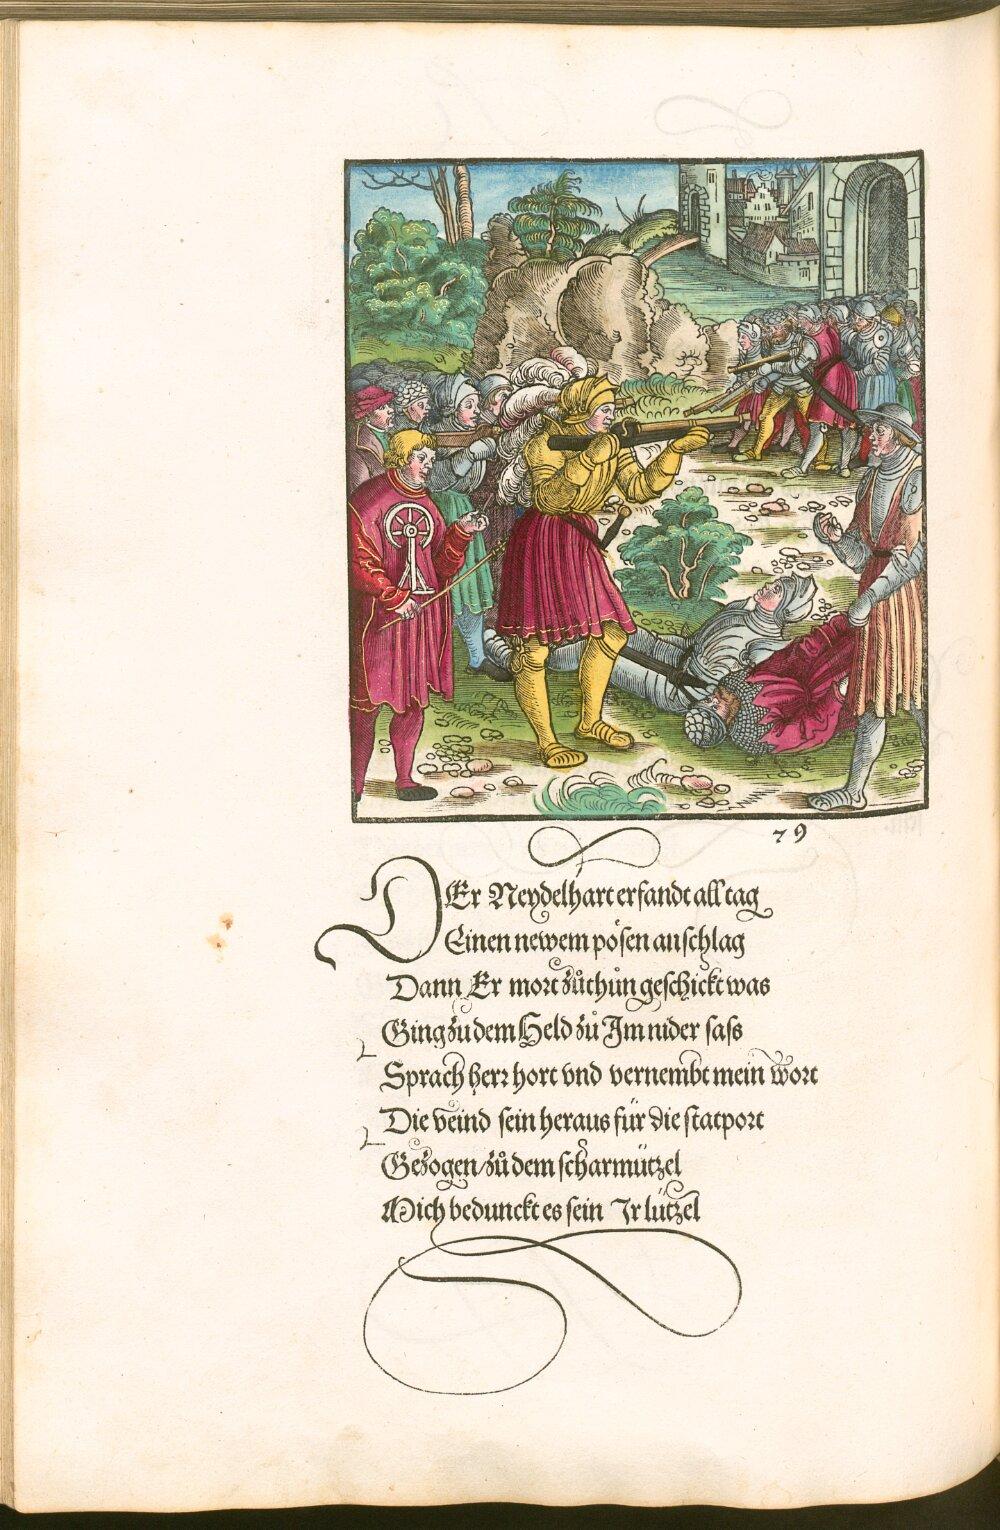 79
DEr Neydelhart erfandt all tag
Einen newem pösen anschlag
Dann Er mort zůthůn geschickt was
Ging zu dem Held zů Im nider sass
Sprach herr hort vnd vernembt mein wort
Die veind sein heraus für die statport
Gezogen/zů dem scharmützel
Mich bedunckt es sein Ir lützel